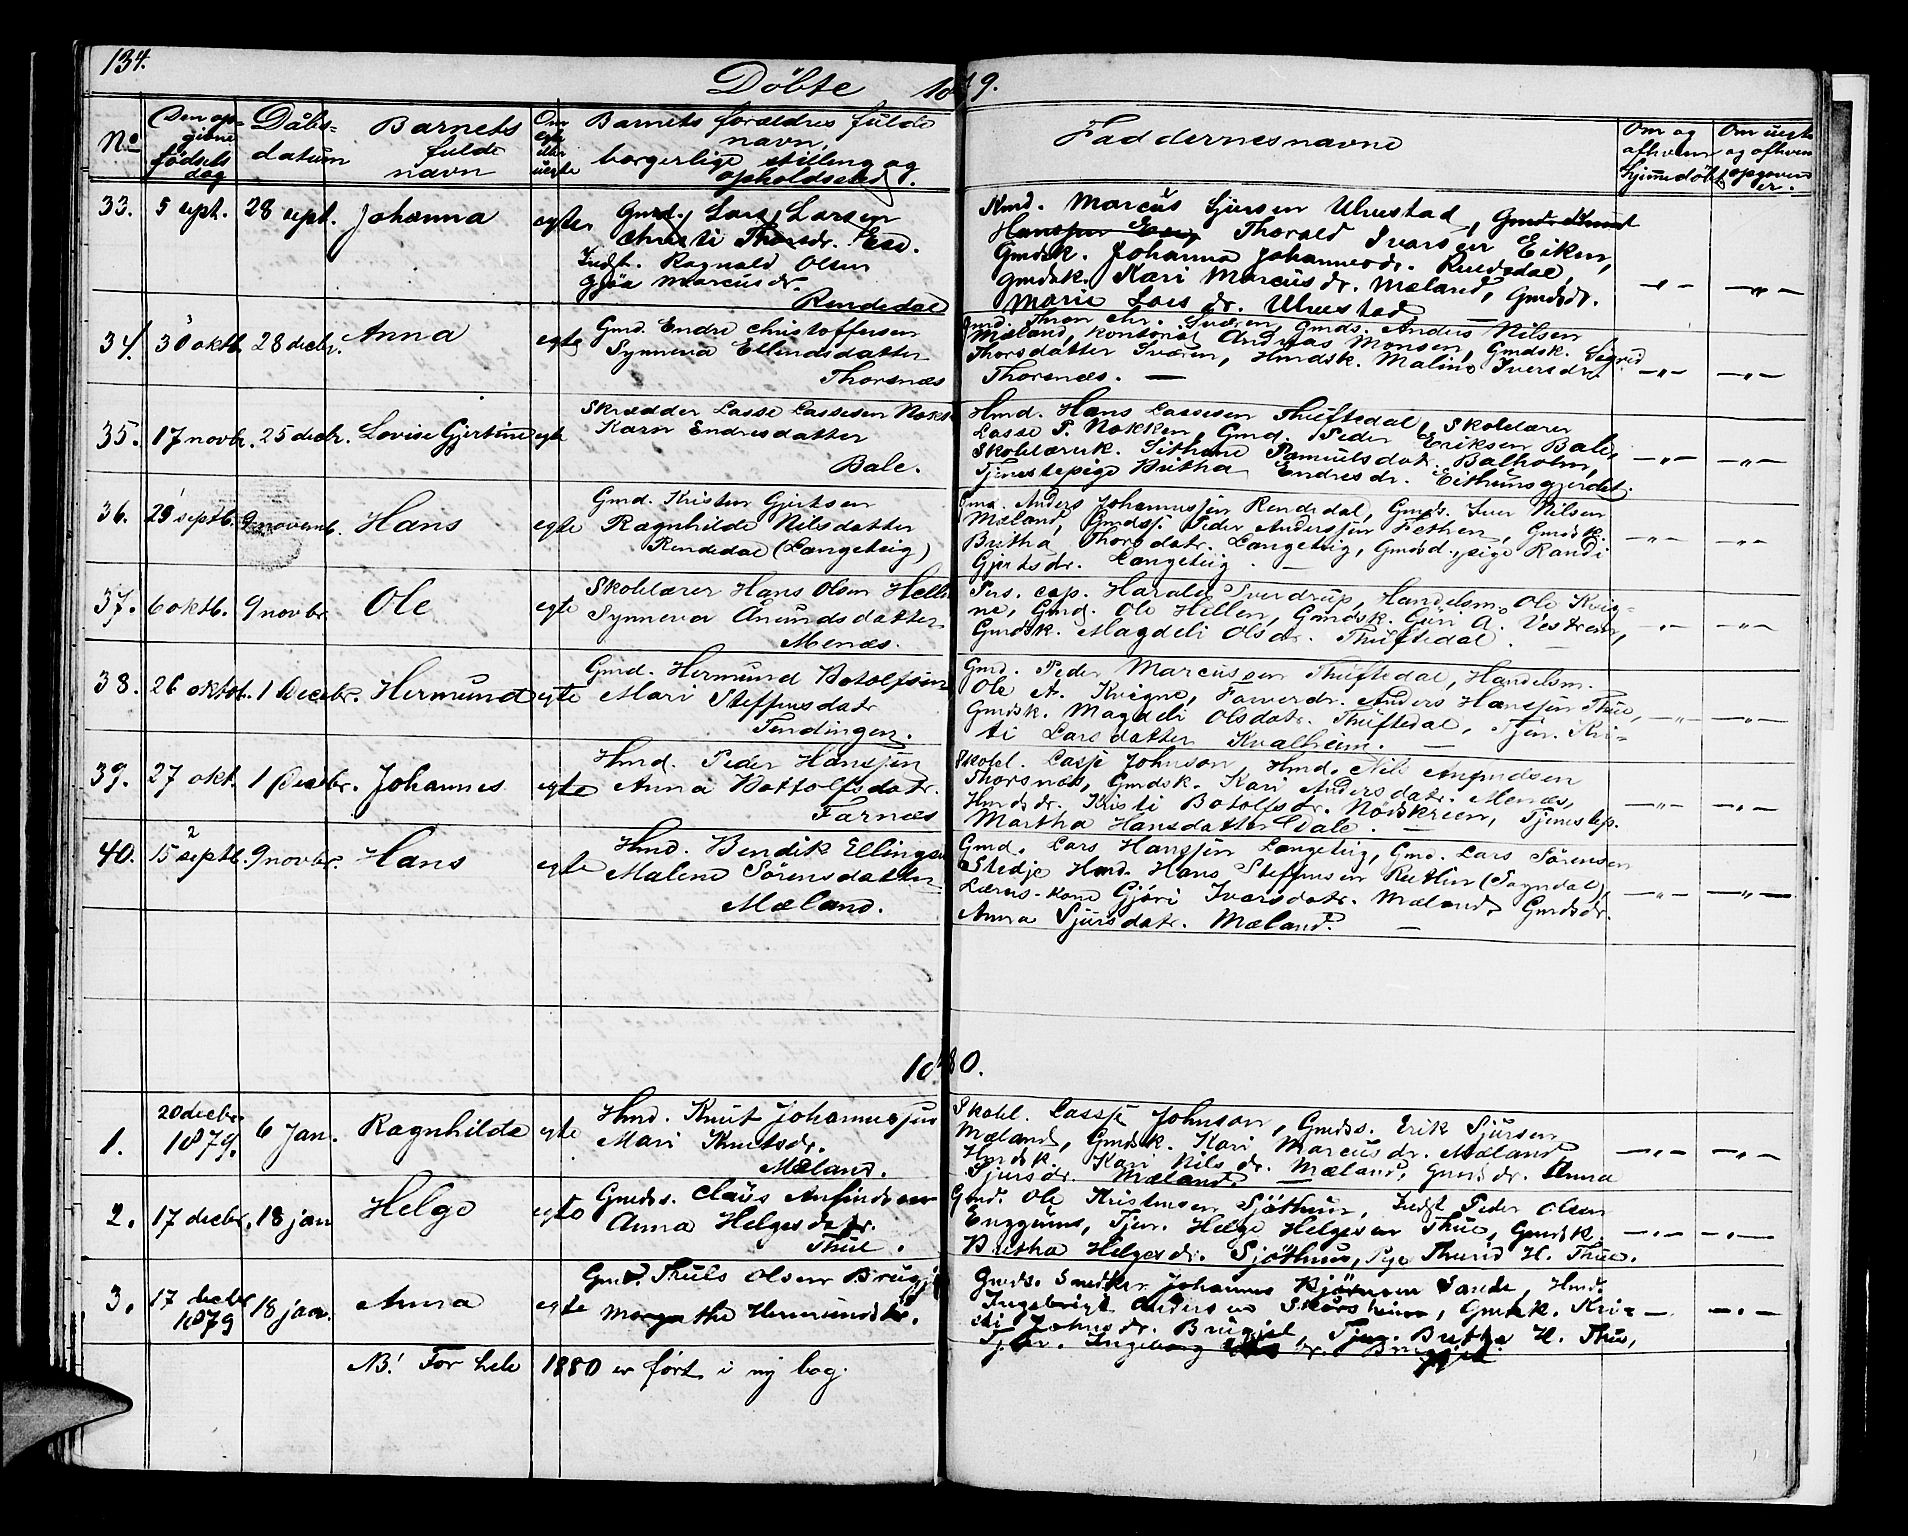 134.
Döbte 1879.
No
Den op-
givne
fødsels
dag
Dåbs-
datum
Barnets
fulde
navn
Om
egte
eller
uegte
Barnets forældres fulde
navn,
borgerlige stilling og
opholdssted.
Faddernes navne
Om og
afhvem
hjemmedöbt
Om uegte
og afhvem
opgiven
er.
33. 5 sept. 28 sept. Johanna egte
Gmd. Lars Larsen
Christi Thorsdr. Ese.
Indst. Ragnald Olsen
Gjöa Marcusdr.
Rendedal
Kmd. Marcus Sjursen Ulvestad, Gmds Knut
Hanssen Ese, Thorald Ivarsen Eiken,
Gmdsk. Johanna Johannesdr. Rendedal,
Gmdsk. Kari Marcusdr. Mæland, Gmdsdr.
Marie Larsdr. Ulvestad
34. 30 oktb. 28 decbr. Anna egte
Gmd. Endre Christoffersen
Synneva Ellendsdatter
Thorsnæs
Gmd. Thron Chr. Sværen, Gmds. Anders Nilsen
Mæland, kontorist Andreas Monsen, Gmdsk. Sigrid
Thorsdatter Sværen, Hmdsk. Maline Iversdr.
Thorsnæs. —
35. 17 novbr. 25 decbr. Lovise Gjertine egte
Skrædder Lasse Lassesen Nokk
Karn Endresdatter
Bale.
Hmd. Hans Lassesen Thuftedal, Skolelærer
Lasse P. Nokken, Gmd. Peder Eriksen Bale,
Skolelærerk. Sithane Samuelsdat. Balholm,
Tjenestepige Britha Endresdr. Eithunsgjerdet.
36. 29 septb. 9 novemb. Hans egte
Gmd. Kristen Gjertsen
Ragnhilde Nilsdatter
Rendedal (Langeteig)
Gmd. Anders Johannessen Rendedal, Gmds. Iver Nilsen
Mæland, Gmdss. Peder Anderssen Fethen, Gmdsk.
Britha Thorsdatr. Langeteig, Gmdsd. pige Randi
Gjertsdr. Langeteig. —
37. 6 oktb. 9 novbr. Ole egte
Skolelærer Hans Olsen Helle
Synneva Anundsdatter
Menæs.
Pers. cap. Harald Sverdrup, Handelsm. Ole Kvig-
ne, Gmd. Ole Hellen, Gmdsk. Guri A. Vestrem,
Gmdsk. Magdeli Olsdr. Thuftedal. —
38. 26 oktob. 1 Decebr. Hermund egte
Gmd. Hermund Botolfsen
Mari Steffensdatr
Tendingen.
Gmd. Peder Marcussen Thuftedal, Handelsm.
Ole A. Kvigne, Farverdr. Anders Hanssen Thue,
Gmdsk. Magdeli Olsdatr. Thuftedal, Tjen. Kri-
ti Larsdatter Kvalheim. —
39. 27 okt. 1 Decebr. Johannes egte
Hmd. Peder Hanssen
Anna Bottolfsdatr.
Farnæs
Skolel. Lasse Johnson, Hmd. Nils Anfindsen
Thorsnæs, Gmdsk. Kari Andersdatr. Menæs,
Hmdsdr. Kristi Botolfsdr. Nösskreen, Tjenestep.
Martha Hansdatter Dale. —
40. 15 septb. 9 novbr. Hans egte
Hmd. Bendik Ellingsen
Malene Sörensdatter
Mæland.
Gmd. Lars Hanssen Langeteig, Gmd. Lars Sörensen
Stedje Hmd. Hans Steffensen Rutlin (Sogndal),
Lærers-kone Gjöri Iversdatr. Mæland, Gmdsdr.
Anna Sjursdatr. Mæland. —
1880.
1. 20 decbr 1879. 6 Jan. Ragnhilde egte
Hmd. Knut Johannessen
Mari Knutsdr.
Mæland.
Skolel. Lasse Johnson, Gmdss. Erik Sjursen
Mæland, Gmdsk. Kari Marcusdr. Mæland
Hmdsk. Kari Nilsdr. Mæland, Gmdsdr. Anna
Sjursdr. Mæland
2. 17 decbr. 18 jan Helge egte
Gmds. Claus Anfindsen
Anna Helgesdatr.
Thue.
Gmd. Ole Kristensen Sjöthun, Indst Peder Olsen
Tjen. Helge Helgesen Thue, Gmdsk.
Britha Helgesdr. Sjöthun, Pige Thurid H. Thue.
3. 17 decbr 1879 18 jan. Anna egte
Gmd. Truls Olsen Brugj
Margathe Hermundsdr.
Gmds. Snedker Johannes Bjö Sande, Hmd.
Ingebrigt Andersen Skårsheim, Gmdsk. Kri-
sti Johnsdr. Brugjel, Tjen. Britha H. Thue,
Tjen. Ingeborg
NB! For hele 1880 er fört i ny bog.